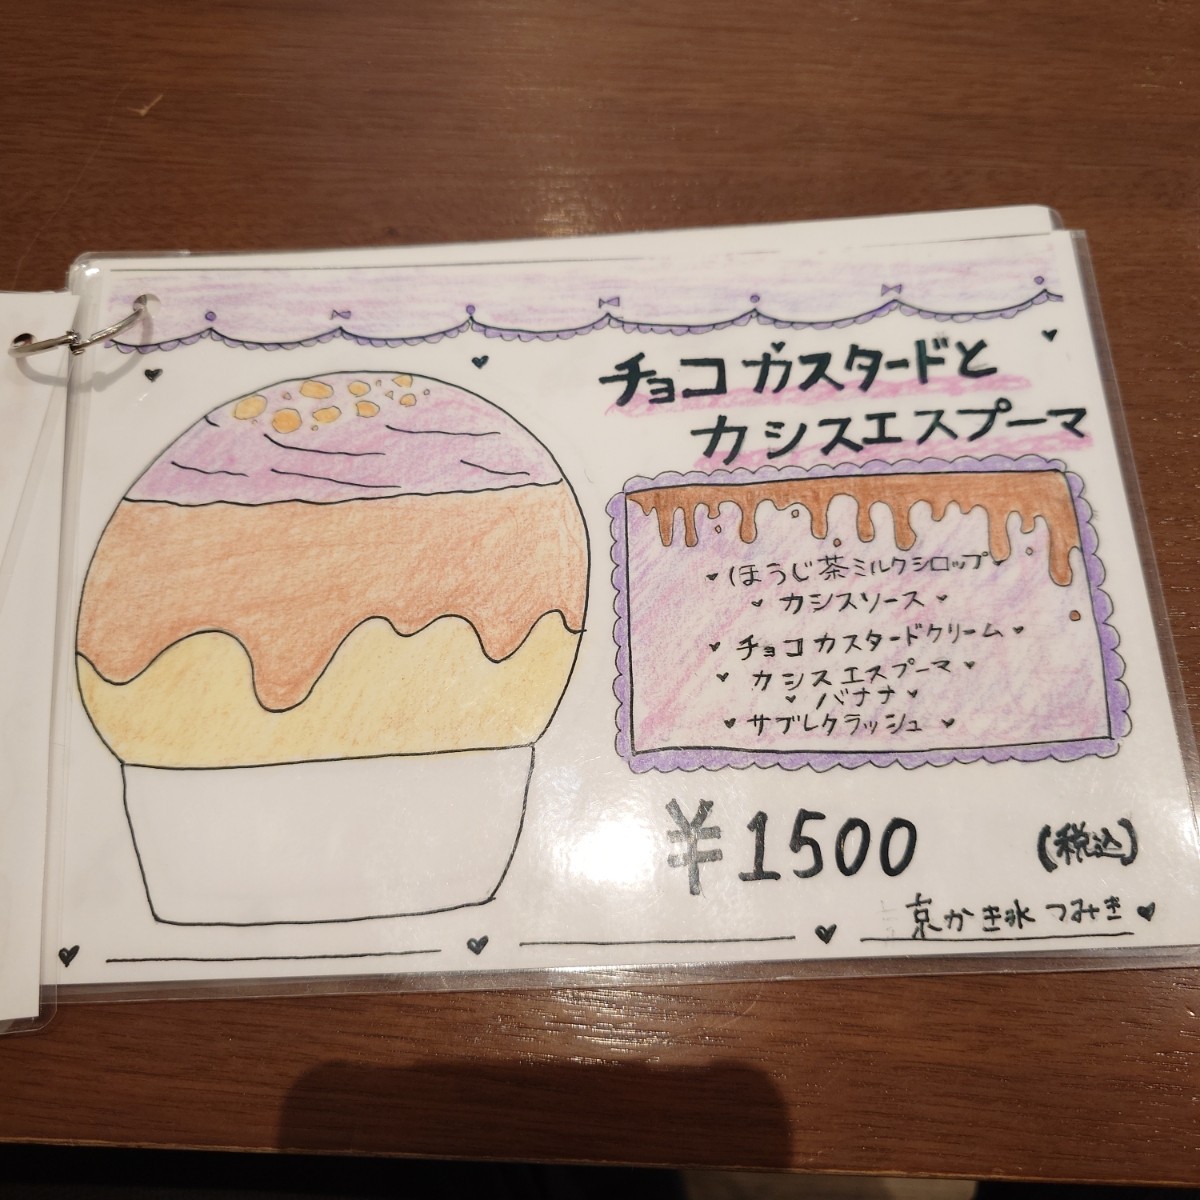 チョコカスタードと
カシスエスプーマ
ほうじ茶ミルクシロップ
カシスソース
チョコカスタードクリーム
カシスエスプーマ
バナナ
サブレクラッシュ
¥1500 (税込)
京かき氷 つみき